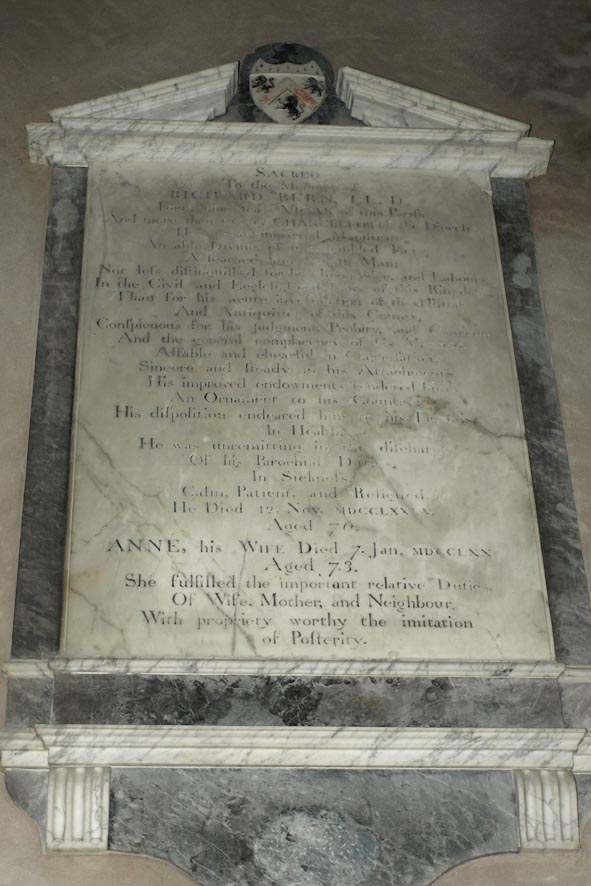 SACRED
To the Memory of
RICHARD BURN, LL. D.
Forty nine Years of this Parish
And more than CHANCELLOR of the Diocese
impartial Magistrate
An able Divine
A learned Man
Nor leſs diſtinguiſhed for his Knowledge and Labours
In the Civil and Eccleſiaſtical Laws of this Kingdom
Than for his acute inveſtigation of the Hiſtory
And Antiquities of this County,
Conſpicuous for his judgment, Probity, and Candour
And the general complacency of his
Affable and chearful in Converſation,
Sincere and ſteady in his Attachments
His improved endowments rendered him
An Ornament to his Country
His diſpoſition endeared him to his Friends
In Health,
He was unremitting in the diſcharge
Of his Parochial Duty
In Sickneſs
Calm, Patient, and Reſigned.
He Died 12. Nov. MDCCLXXXV.
Aged 76.
ANNE, his WIFE Died 7. Jan. MDCCLXX
Aged 73.
She fulfilled the important relative Duties,
Of Wife, Mother, and Neighbour,
With propriety worthy the imitation
of Poſterity.